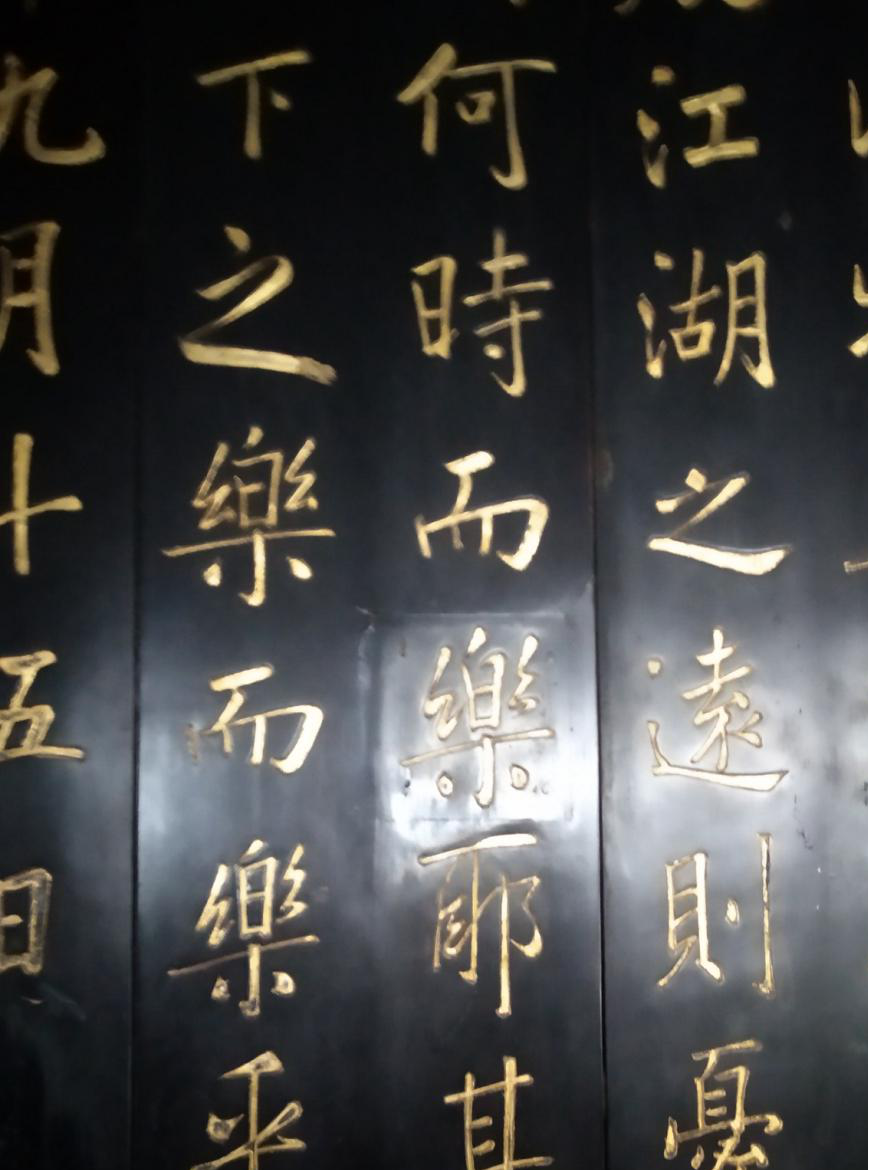 江湖之遠則憂
何時而樂耶其
下之樂而樂乎
九月十五日